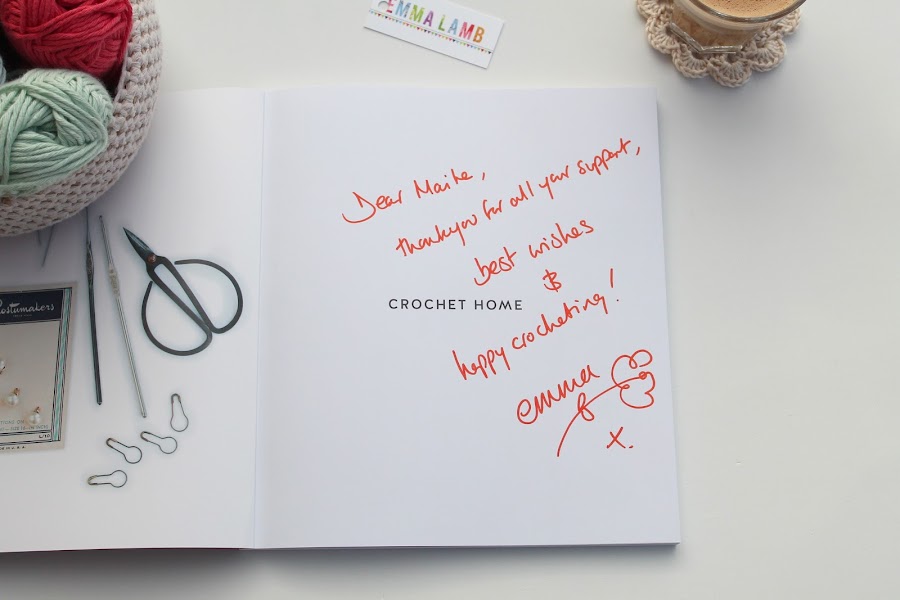 EMMA LAMB
Dear Maike,
thankyou for all your support,
best wishes
&
CROCHET HOME
happy crocheting!
emma
x.